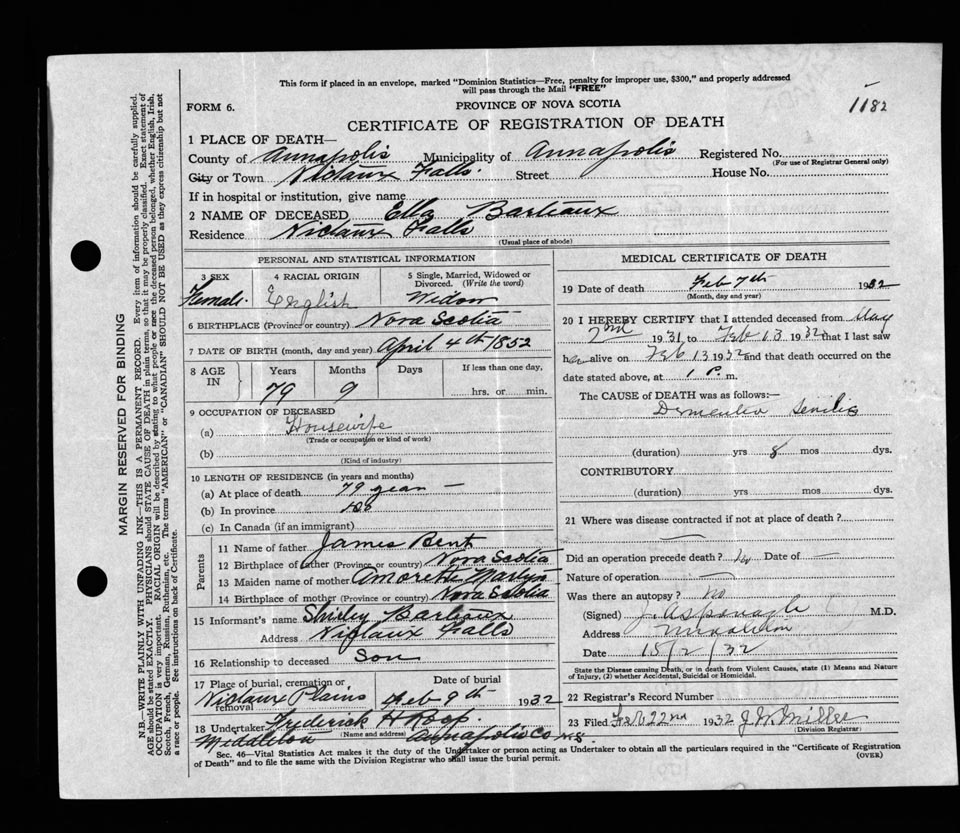 This form if placed in an envelope, marked "Dominion Statistics—Free, penalty for improper use, $300," and properly addressed
will pass through the Mail "FREE"
FORM 6.
PROVINCE OF NOVA SCOTIA
1182
CERTIFICATE OF REGISTRATION OF DEATH
1 PLACE OF DEATH—
County of Annapolis Municipality of Annapolis Registered No.
(For use of Registrar General only)
City or Town Nictaux Falls. Street House No.
If in hospital or institution, give name
2 NAME OF DECEASED Ella Barteaux
Residence Nictaux Falls
(Usual place of abode)
PERSONAL AND STATISTICAL INFORMATION
3 SEX 4 RACIAL ORIGIN 5 Single, Married, Widowed or
Divorced. (Write the word)
Female. English Widow
6 BIRTHPLACE (Province or country) Nova Scotia
7 DATE OF BIRTH (month, day and year) April 4th 1852
8 AGE IN Years Months Days If less than one day,
79 9 hrs. or min.
9 OCCUPATION OF DECEASED
(a) Housewife
(Trade or occupation or kind of work)
(b)
(Kind of industry)
10 LENGTH OF RESIDENCE (in years and months)
(a) At place of death 79 years —
(b) In province
(c) In Canada (if an immigrant)
Parents
11 Name of father James Bent
12 Birthplace of father (Province or country) Nova Scotia
13 Maiden name of mother
14 Birthplace of mother (Province or country) Nova Scotia
15 Informant's name Shirley Barteaux
Address Nictaux Falls
16 Relationship to deceased Son
17 Place of burial, cremation or removal Date of burial
Nictaux Plains Feb 9th 1932
18 Undertaker Frederick H Roop.
(Name and address)
Middleton Annapolis Co N.S.
MEDICAL CERTIFICATE OF DEATH
19 Date of death Feb 7th 1932
(Month, day and year)
20 I HEREBY CERTIFY that I attended deceased from May
2nd 1931 to Feb 13 1932 that I last saw
her alive on Feb 13 1932 and that death occurred on the
date stated above, at 1 P. m.
The CAUSE OF DEATH was as follows:—
Dementia Senilis
(duration) yrs 8 mos dys.
CONTRIBUTORY
(duration) yrs mos dys.
21 Where was disease contracted if not at place of death?
—
Did an operation precede death? No Date of —
Nature of operation —
Was there an autopsy? no
(Signed) M.D.
Address Middleton
Date 15/2/32
State the Disease causing Death, or in death from Violent Causes, state (1) Means and Nature
of Injury, (2) whether Accidental, Suicidal or Homicidal.
22 Registrar's Record Number
23 Filed Feb 22nd 1932 J W Miller
(Division Registrar)
Sec. 46—Vital Statistics Act makes it the duty of the Undertaker or person acting as Undertaker to obtain all the particulars required in the "Certificate of Registration
of Death" and to file the same with the Division Registrar who shall issue the burial permit.
(OVER)
MARGIN RESERVED FOR BINDING
N.B.—WRITE PLAINLY WITH UNFADING INK—THIS IS A PERMANENT RECORD. Every item of information should be carefully supplied.
AGE should be stated EXACTLY. PHYSICIANS should STATE CAUSE OF DEATH in plain terms, so that it may be properly classified. Exact statement of
OCCUPATION is very important. RACIAL ORIGIN will be described by stating to what people or race the deceased person belonged, whether English, Irish,
Scotch, French, German, Russian, Ruthenian, etc. The terms "AMERICAN" or "CANADIAN" SHOULD NOT BE USED as they express citizenship but not
a race or people. See instructions on back of Certificate.